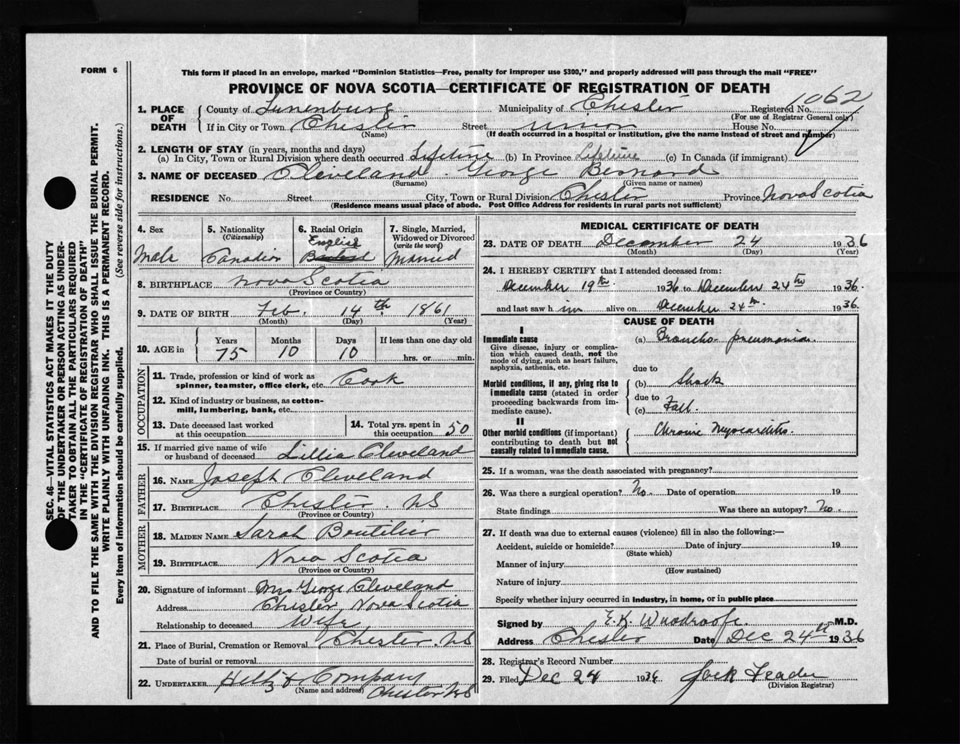 FORM 6
This form if placed in an envelope, marked "Dominion Statistics—Free, penalty for improper use $300," and properly addressed will pass through the mail "FREE"
PROVINCE OF NOVA SCOTIA—CERTIFICATE OF REGISTRATION OF DEATH
1. PLACE OF DEATH
County of Lunenburg Municipality of Chester Registered No. 1062
(For use of Registrar General only)
If in City or Town Chester Street Union House No.
(Name) (If death occurred in a hospital or institution, give the name instead of street and number)
2. LENGTH OF STAY (in years, months and days)
(a) In City, Town or Rural Division where death occurred Lifetime (b) In Province Lifetime (c) In Canada (if immigrant)
3. NAME OF DECEASED Cleveland George Bernard
(Surname) (Given name or names)
RESIDENCE No. Street City, Town or Rural Division Chester Province Nova Scotia
(Residence means usual place of abode. Post Office Address for residents in rural parts not sufficient)
4. Sex
Male
5. Nationality
(Citizenship)
Canadian
6. Racial Origin
English
7. Single, Married, Widowed or Divorced
(write the word)
Married
8. BIRTHPLACE Nova Scotia
(Province or Country)
9. DATE OF BIRTH Feb. 14th 1861
(Month) (Day) (Year)
10. AGE in
Years Months Days If less than one day old
75 10 10 hrs. or min.
OCCUPATION
11. Trade, profession or kind of work as spinner, teamster, office clerk, etc. Cook
12. Kind of industry or business, as cotton-mill, lumbering, bank, etc.
13. Date deceased last worked at this occupation
14. Total yrs. spent in this occupation 50
15. If married give name of wife or husband of deceased Lillia Cleveland
FATHER
16. NAME Joseph Cleveland
17. BIRTHPLACE Chester NS
(Province or Country)
MOTHER
18. MAIDEN NAME Sarah Boutilier
19. BIRTHPLACE Nova Scotia
(Province or Country)
20. Signature of informant Mrs George Cleveland
Address Chester, Nova Scotia
Relationship to deceased Wife
21. Place of Burial, Cremation or Removal Chester NS
Date of burial or removal
22. UNDERTAKER & Company
(Name and address) Chester NS
MEDICAL CERTIFICATE OF DEATH
23. DATE OF DEATH December 24 1936
(Month) (Day) (Year)
24. I HEREBY CERTIFY that I attended deceased from:
December 19th 1936 to December 24th 1936
and last saw h im alive on December 24th 1936
CAUSE OF DEATH
I
Immediate cause
Give disease, injury or complication which caused death, not the mode of dying, such as heart failure, asphyxia, asthenia, etc.
(a) Broncho-pneumonia
due to
Morbid conditions, if any, giving rise to immediate cause (stated in order proceeding backwards from immediate cause).
(b) Shock
due to
(c) Fall.
II
Other morbid conditions (if important) contributing to death but not causally related to immediate cause.
Chronic Myocarditis.
25. If a woman, was the death associated with pregnancy?
26. Was there a surgical operation? No. Date of operation 19
State findings Was there an autopsy? No.
27. If death was due to external causes (violence) fill in also the following:—
Accident, suicide or homicide? Date of injury 19
(State which)
Manner of injury
(How sustained)
Nature of injury
Specify whether injury occurred in industry, in home, or in public place
Signed by E.K. Woodroofe. M.D.
Address Chester Date Dec 24th 1936
28. Registrar's Record Number
29. Filed Dec 24 1936 Jack
(Division Registrar)
SEC. 46—VITAL STATISTICS ACT MAKES IT THE DUTY
OF THE UNDERTAKER OR PERSON ACTING AS UNDER-
TAKER TO OBTAIN ALL THE PARTICULARS REQUIRED
IN THE "CERTIFICATE OF REGISTRATION OF DEATH"
AND TO FILE THE SAME WITH THE DIVISION REGISTRAR WHO SHALL ISSUE THE BURIAL PERMIT.
WRITE PLAINLY WITH UNFADING INK. THIS IS A PERMANENT RECORD.
Every item of information should be carefully supplied. (See reverse side for instructions.)